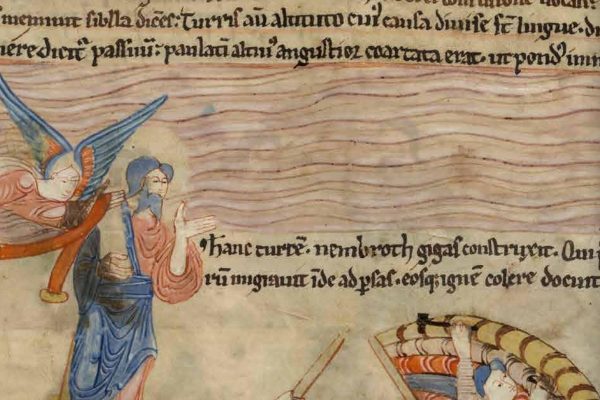 meminit siblla dicēs: Turris aū altituto cuiꝰ causa diuise st̄ lingue.
dicit̄ passuū: paulatī altiuꝰ angustior coartata erat. ut pondꝰ
hanc turrē. nembroth gigas construxit. Qui
rū migrauit īde ad ꝑsas. eosq; ignē colere docuit